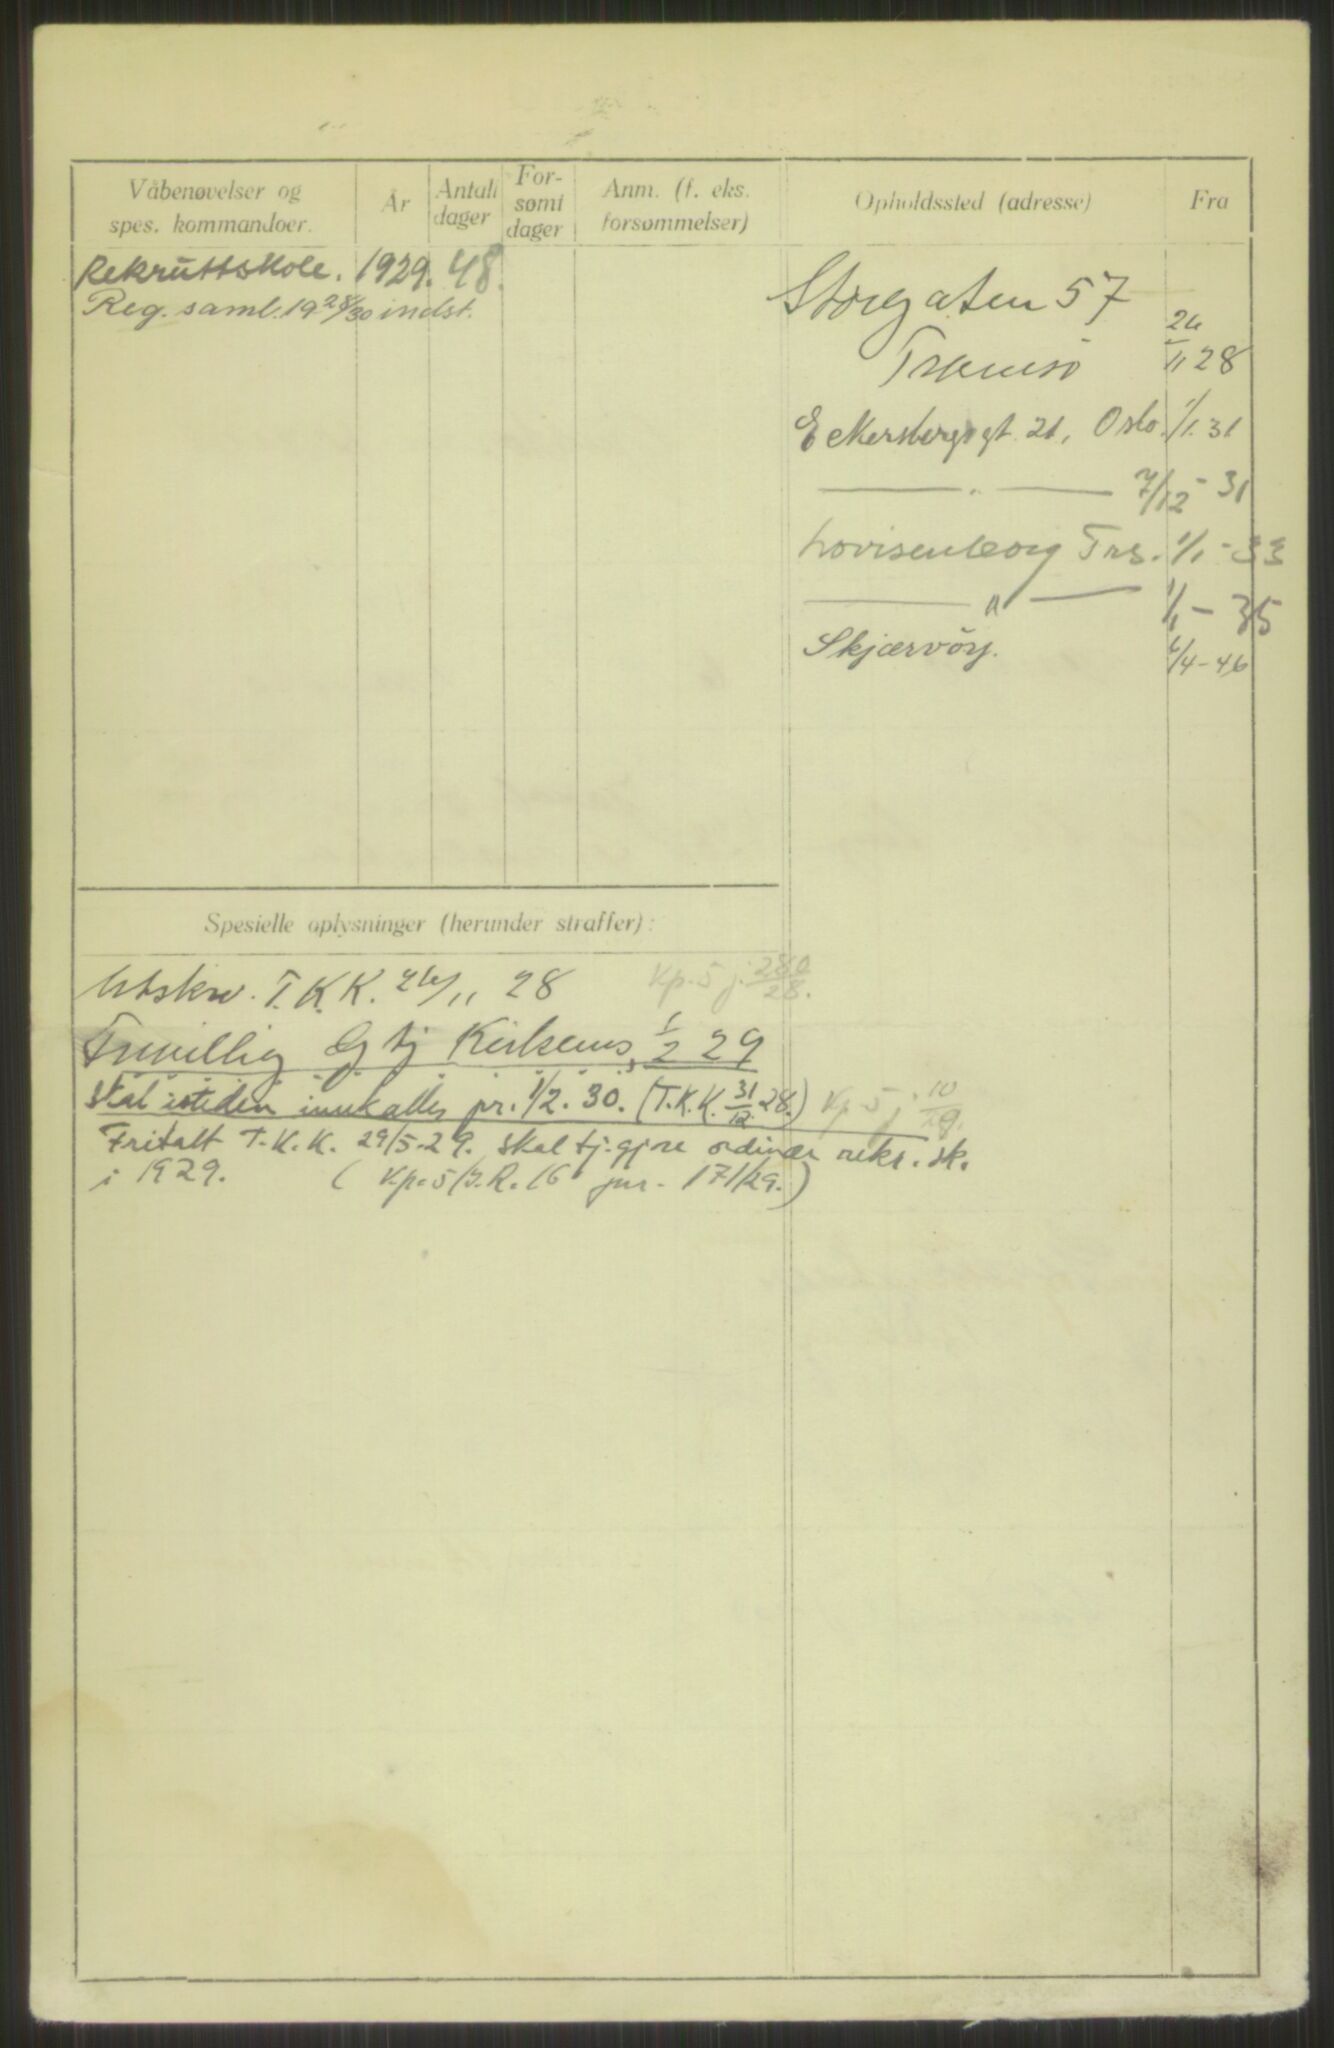 Våbenøvelser og
spes. kommandoer.
År
Antall
dager
For-
sømt
dager
Anm. (f. eks.
forsømmelser)
Opholdssted (adresse)
Fra
Rekruttskole. 1929. 48.
Reg. saml. 19 28/30 indst.
Storgaten 57
Tromsö 24/11 28
Eckersbergsgt. 21, Oslo. 1/1. 31
— " — 7/12 - 31
Lovisenberg Trs. 1/1 - 33
— " — 1/1 - 35
Skjærvöy. 6/4 - 46
Spesielle oplysninger (herunder straffer):
Utskr. T.K.K. 24/11 28 Kp. 5 j. 280/28.
Frivillig Kirkenes, 1/2 29
Skal isteden innkalles pr. 1/2. 30. (T.K.K. 31/12. 28.) Kp. 5 j. 10/29.
Fritatt T.K.K. 29/5-29. skal tj.gjøre ordinær rekr. sk.
i 1929. (Kp. 5/I.R. 16 jnr. 171/29.)